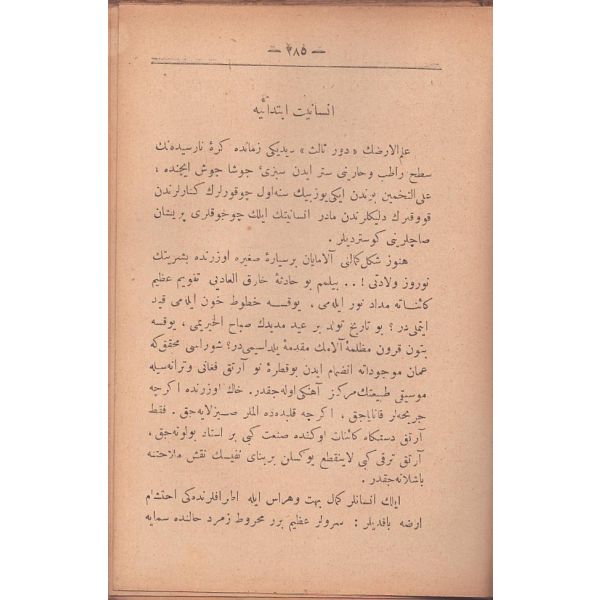 — ٢٨٥ —
انسانیت ابتدائیه
علم الارضك « دور ثالث » دیدیكی زمانده كرۀ نارسیده‌نك
سطح راطب و حارنی ستر ایدن سبزیٔ جوشا جوش ایچنده ،
علی التخمین بوندن ایكی یوز بیك سنه اول چوقورلرك كنارلرندن
قووقلرك دلیكلرندن مادر انسانیتك ایلك چوجوقلری پریشان
صاچلرینی كوستردیلر .
هنوز شكل كمالنی آلامایان بر سیارۀ صغیره اوزرنده بشریتك
نوروز ولادتی ! . . بیلمم بو حادثۀ خارق العاده‌یی تقویم عظیم
كائناته مداد نور ایله‌می ، یوقسه خطوط خون ایله‌می قید
ایتملی‌در ؟ بو تاریخ تولد بر عید مدیدك صباح الخیریمی ، یوقسه
بتون قرون مظلمۀ آلامك مقدمۀ یلداسیمی‌در؟ شوراسی محقق‌كه
عمان موجوداته انضمام ایدن بو قطرۀ نو آرتق فغانی و ترانه‌سیله
موسیقی طبیعتك مركز آهنكی اوله‌جقدر . خاك اوزرنده اكرچه
جریحه‌لر قانایاجق ، اكرچه قلبده‌ده الملر صیزلایه‌جق . فقط
آرتق دستكاه كائنات اوكنده صنعت كبی بر استاد بولونه‌جق ،
آرتق ترقی كبی لاینقطع یوكسلن بر بنای نفیسك نقش ملاحتنه
باشلانه‌جقدر .
ایلك انسانلر كمال بهت و هراس ایله اطرافلرنده‌كی احتشام
ارضه باقدیلر : سرولر عظیم برر مخروط زمرد حالنده سمایه